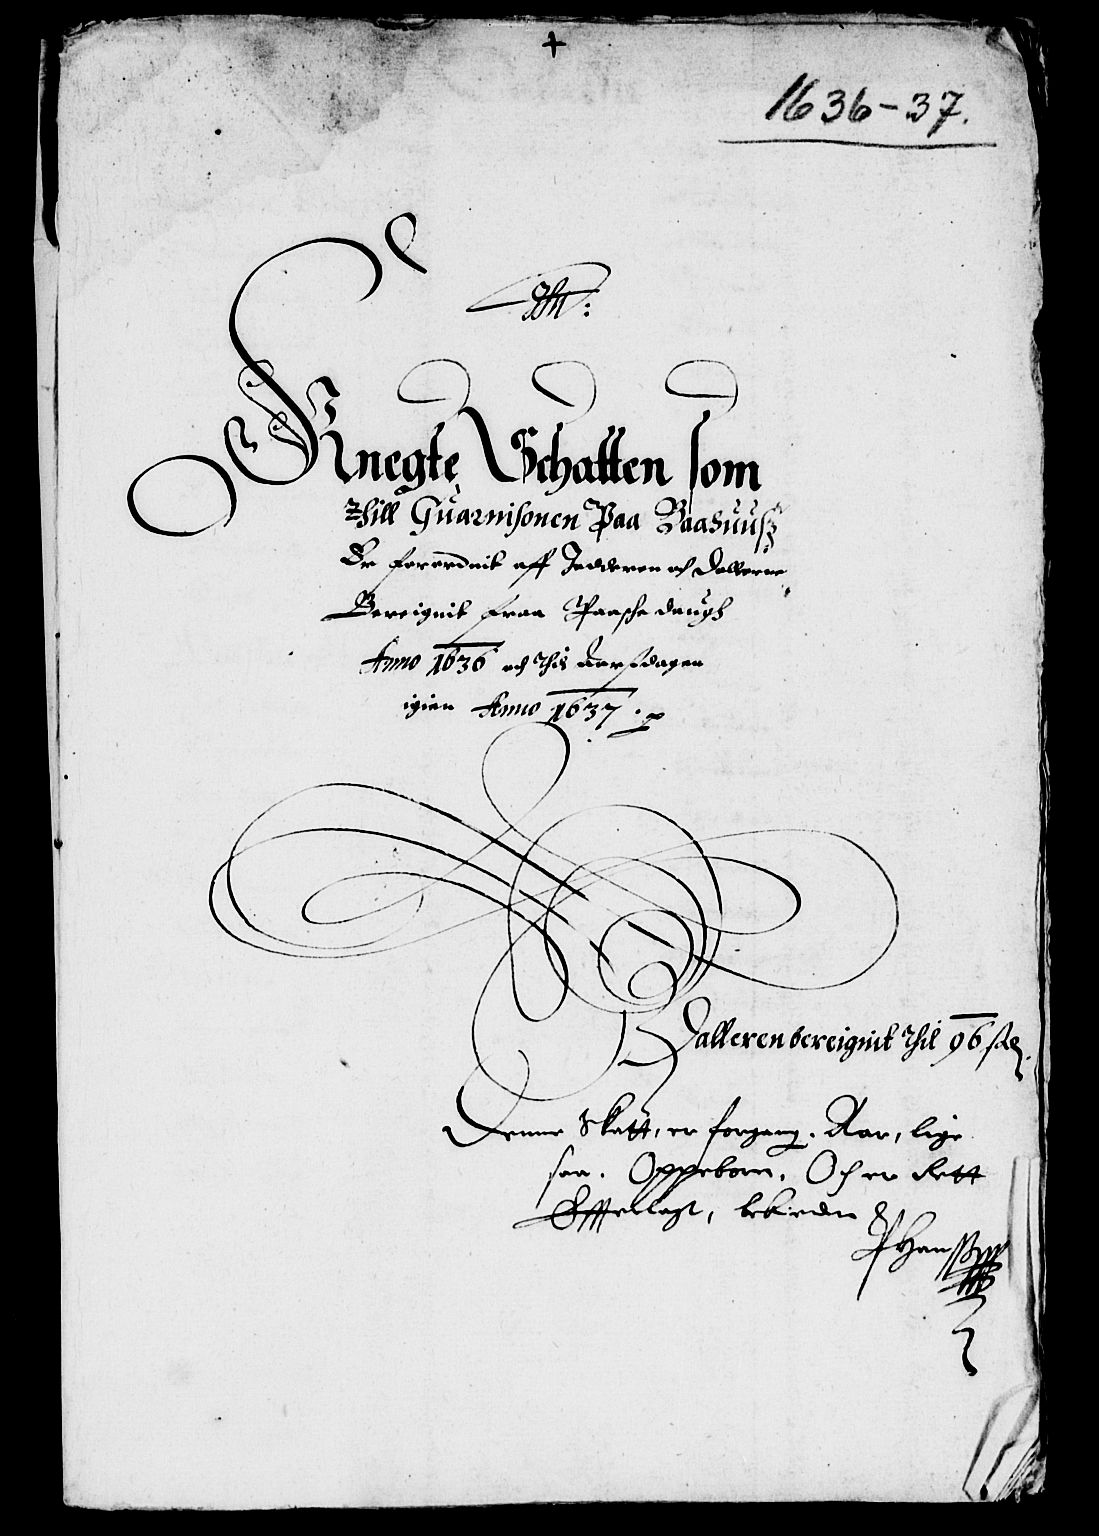 1636-37.
Knegte Schatten som
Thill Guarnisonen Paa Baahuusz
Er forordnit aff Jedderen och Dallerne
Bereignit fraa Paasche daugh
Anno 1636 och Thil Aarsdagen
igien Anno 1637.
Dalleren bereignit Thil 96
Denne Skatt, er forgang. Aar, lige
saa. Oppeborn. Och er Rett
Efftterlagt, bekiender